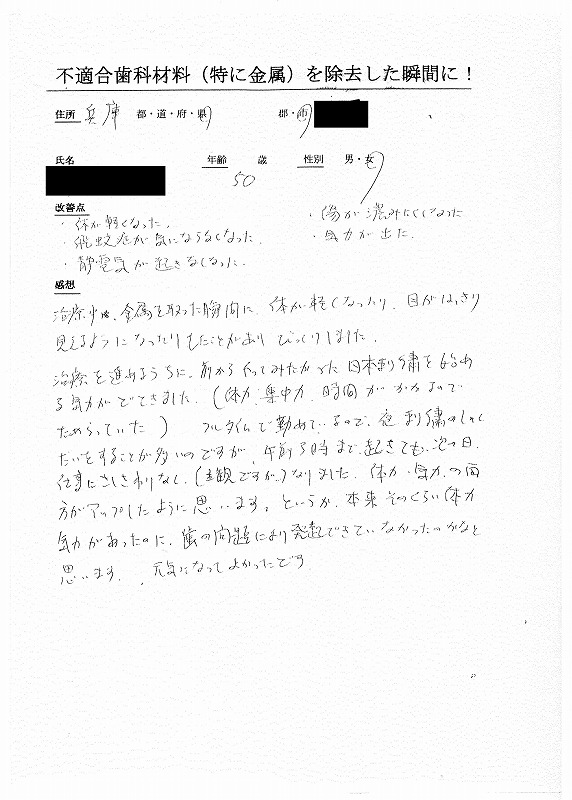 不適合歯科材料（特に金属）を除去した瞬間に！
住所 兵庫 都・道・府・県 郡・市
氏名 年齢 50 歳 性別 男・女
改善点
・体が軽くなった。
・飛蚊症が気にならなくなった。
・静電気が起きなくなった。
・傷が濃みにくくなった
・気力が出た。
感想
治療中は、金属を取った瞬間に、体が軽くなったり、目がはっきり
見えるようになったりしたことがありびっくりしました。
治療を進めるうちに、前から行ってみたかった日本刺繍を始め
る気力がでてきました。（体力、集中力、時間がかかるので
ためらっていた） フルタイムで勤めているので、夜刺繍のしゅく
だいをすることが多いのですが、午前3時まで起きても、次の日、
仕事にさしさわりなし、（主観ですが）なりました。体力、気力、の両
方がアップしたように思います。というか、本来そのくらい体力
気力があったのに、歯の問題により発起できていなかったのかなと
思います。、元気になってよかったです